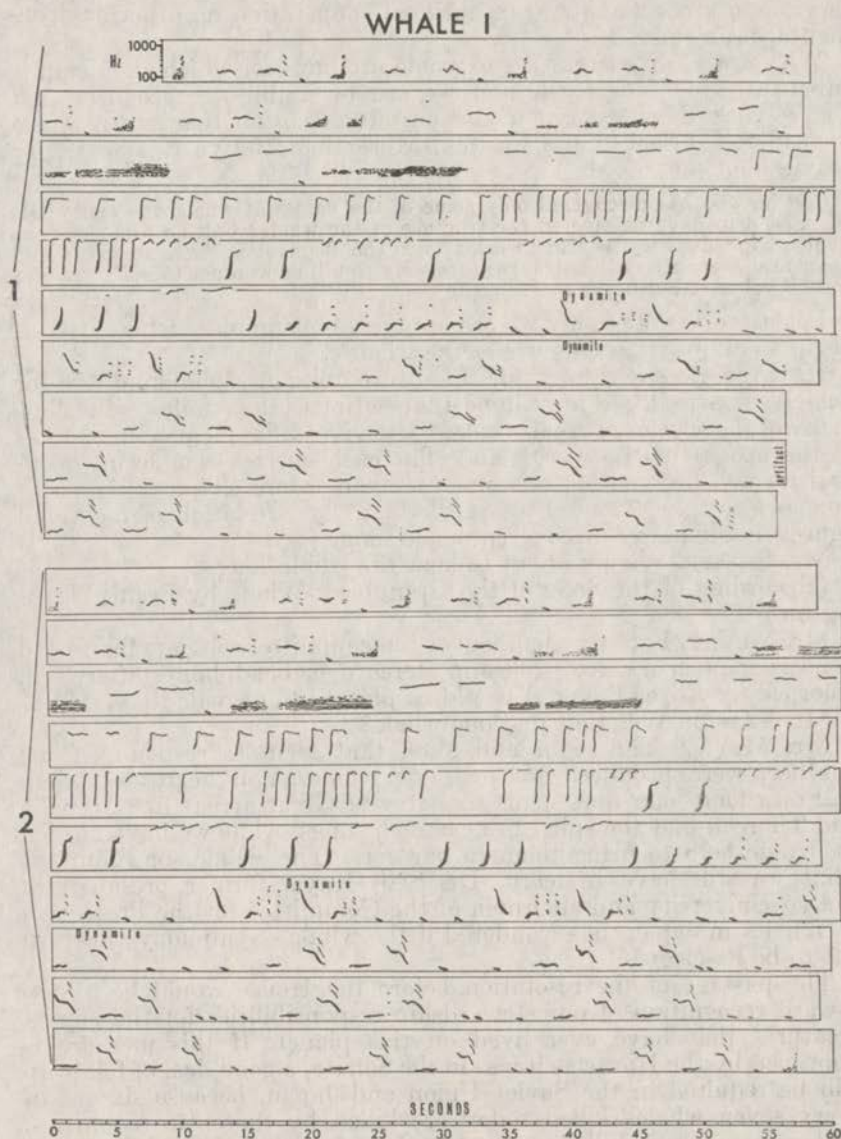 WHALE I
1000
Hz
100
1
Dynamite
Dynamite
artifact
2
Dynamite
Dynamite
SECONDS
0 5 10 15 20 25 30 35 40 45 50 55 60